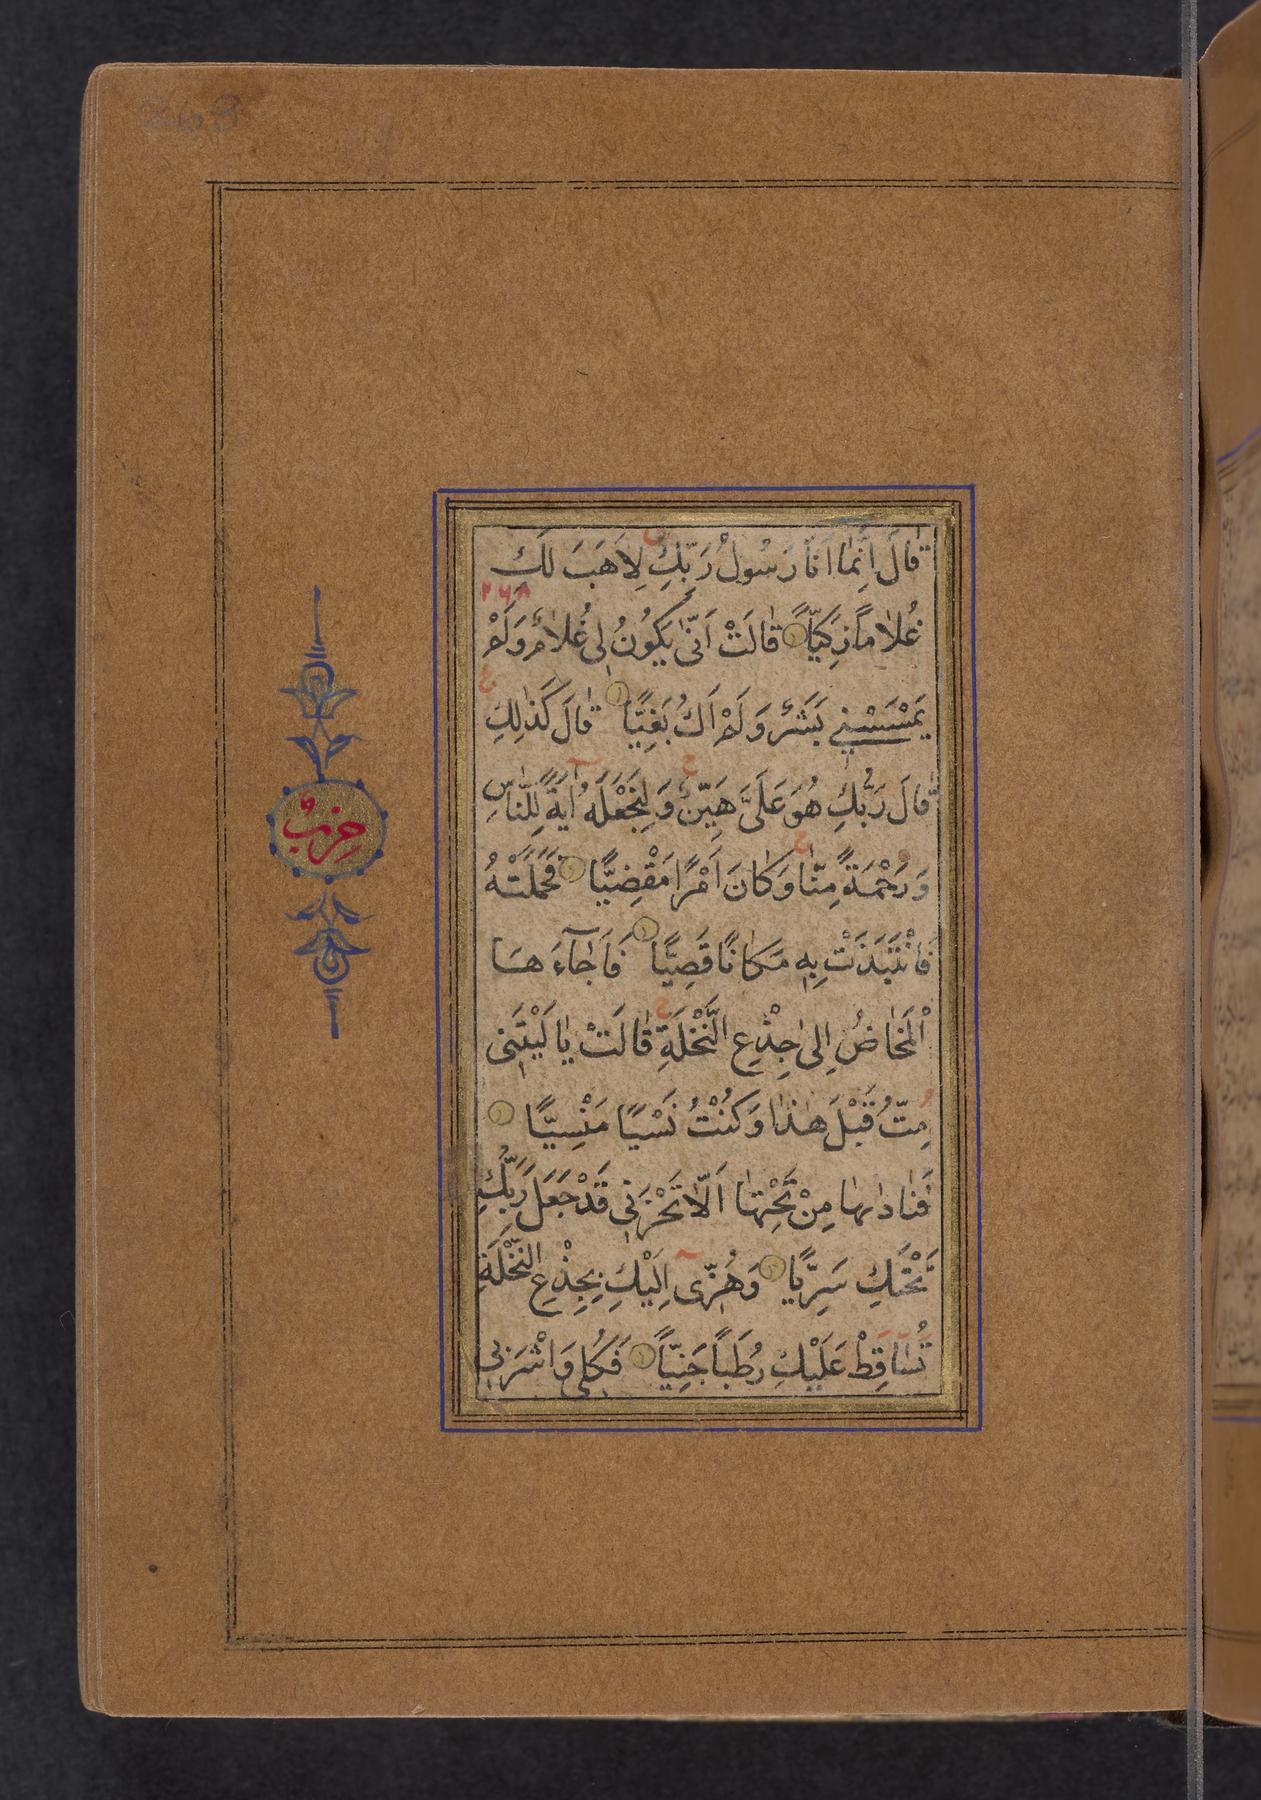 268
قَالَ اِنَّمٰا اَنَا رَسُولُ رَبِّكِ لِاَهَبَ لَكِ
۲۶۸
غُلٰاماً زَكِيّاً قٰالَتْ اَنّٰى يَكُونُ لِى غُلٰامٌ وَلَمْ
يَمْسَسْنِي بَشَرٌ وَلَمْ اَكُ بَغِيًّا قٰالَ كَذٰلِكِ
قٰالَ رَبُّكِ هُوَ عَلَىَّ هَيِّنٌ وَلِنَجْعَلَهُ اٰيَةً لِلنّٰاسِ
حِزْبٌ
وَرَحْمَةً مِنّٰا وَكٰانَ اَمْرًا مَقْضِيًّا فَحَمَلَتْهُ
فَانْتَبَذَتْ بِهِ مَكٰانًا قَصِيًّا فَاَجٰآءَهَا
الْمَخٰاضُ اِلىٰ جِذْعِ النَّخْلَةِ قٰالَتْ يٰا لَيْتَنِى
مِتُّ قَبْلَ هٰذٰا وَكُنْتُ نَسْيًا مَنْسِيًّا
فَنٰادٰىهٰا مِنْ تَحْتِهٰا اَلّٰا تَحْزَنِى قَدْ جَعَلَ رَبُّكِ
تَحْتَكِ سَرِيًّا وَهُزِّى اِلَيْكِ بِجِذْعِ النَّخْلَةِ
تُسٰاقِطْ عَلَيْكِ رُطَباً جَنِيّاً فَكُلِى وَاشْرَبِى